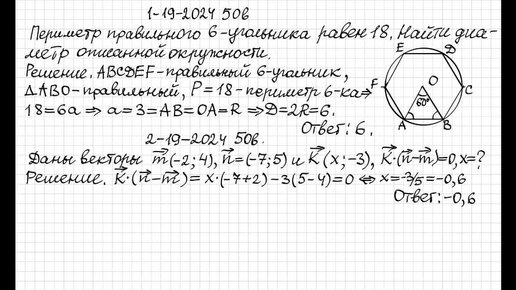 1-19-2024 50в
Периметр правильного 6-угольника равен 18. Найти диа-
метр описанной окружности.
Решение. ABCDEF-правильный 6-угольник,
△ABO-правильный, P=18-периметр 6-ка⇒
18=6a ⇒ a=3=AB=OA=R ⇒D=2R=6.
Ответ: 6.
E D
F O C
60°
A B
2-19-2024 50в.
Даны векторы m⃗(-2;4), n⃗=(-7;5) и K⃗(x;-3), K⃗·(n⃗-m⃗)=0, x=?
Решение. K⃗·(n⃗-m⃗)= x·(-7+2)-3(5-4)=0 ⇔ x=-3/5=-0,6
Ответ:-0,6